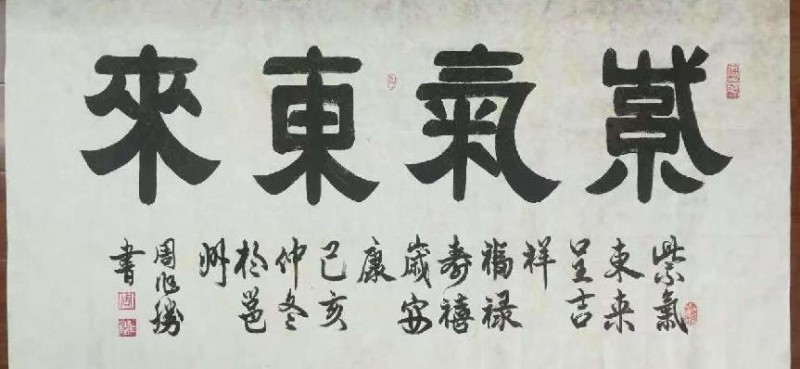 紫氣東來
紫氣
東来
呈吉
祥
福禄
壽禧
歲安
康
己亥
仲冬
於邕
州
周胜
書